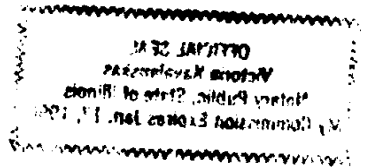 OFFICIAL SEAL
Victoria Kavalauskas
Notary Public, State of Illinois
My Commission Expires Jan. 17,